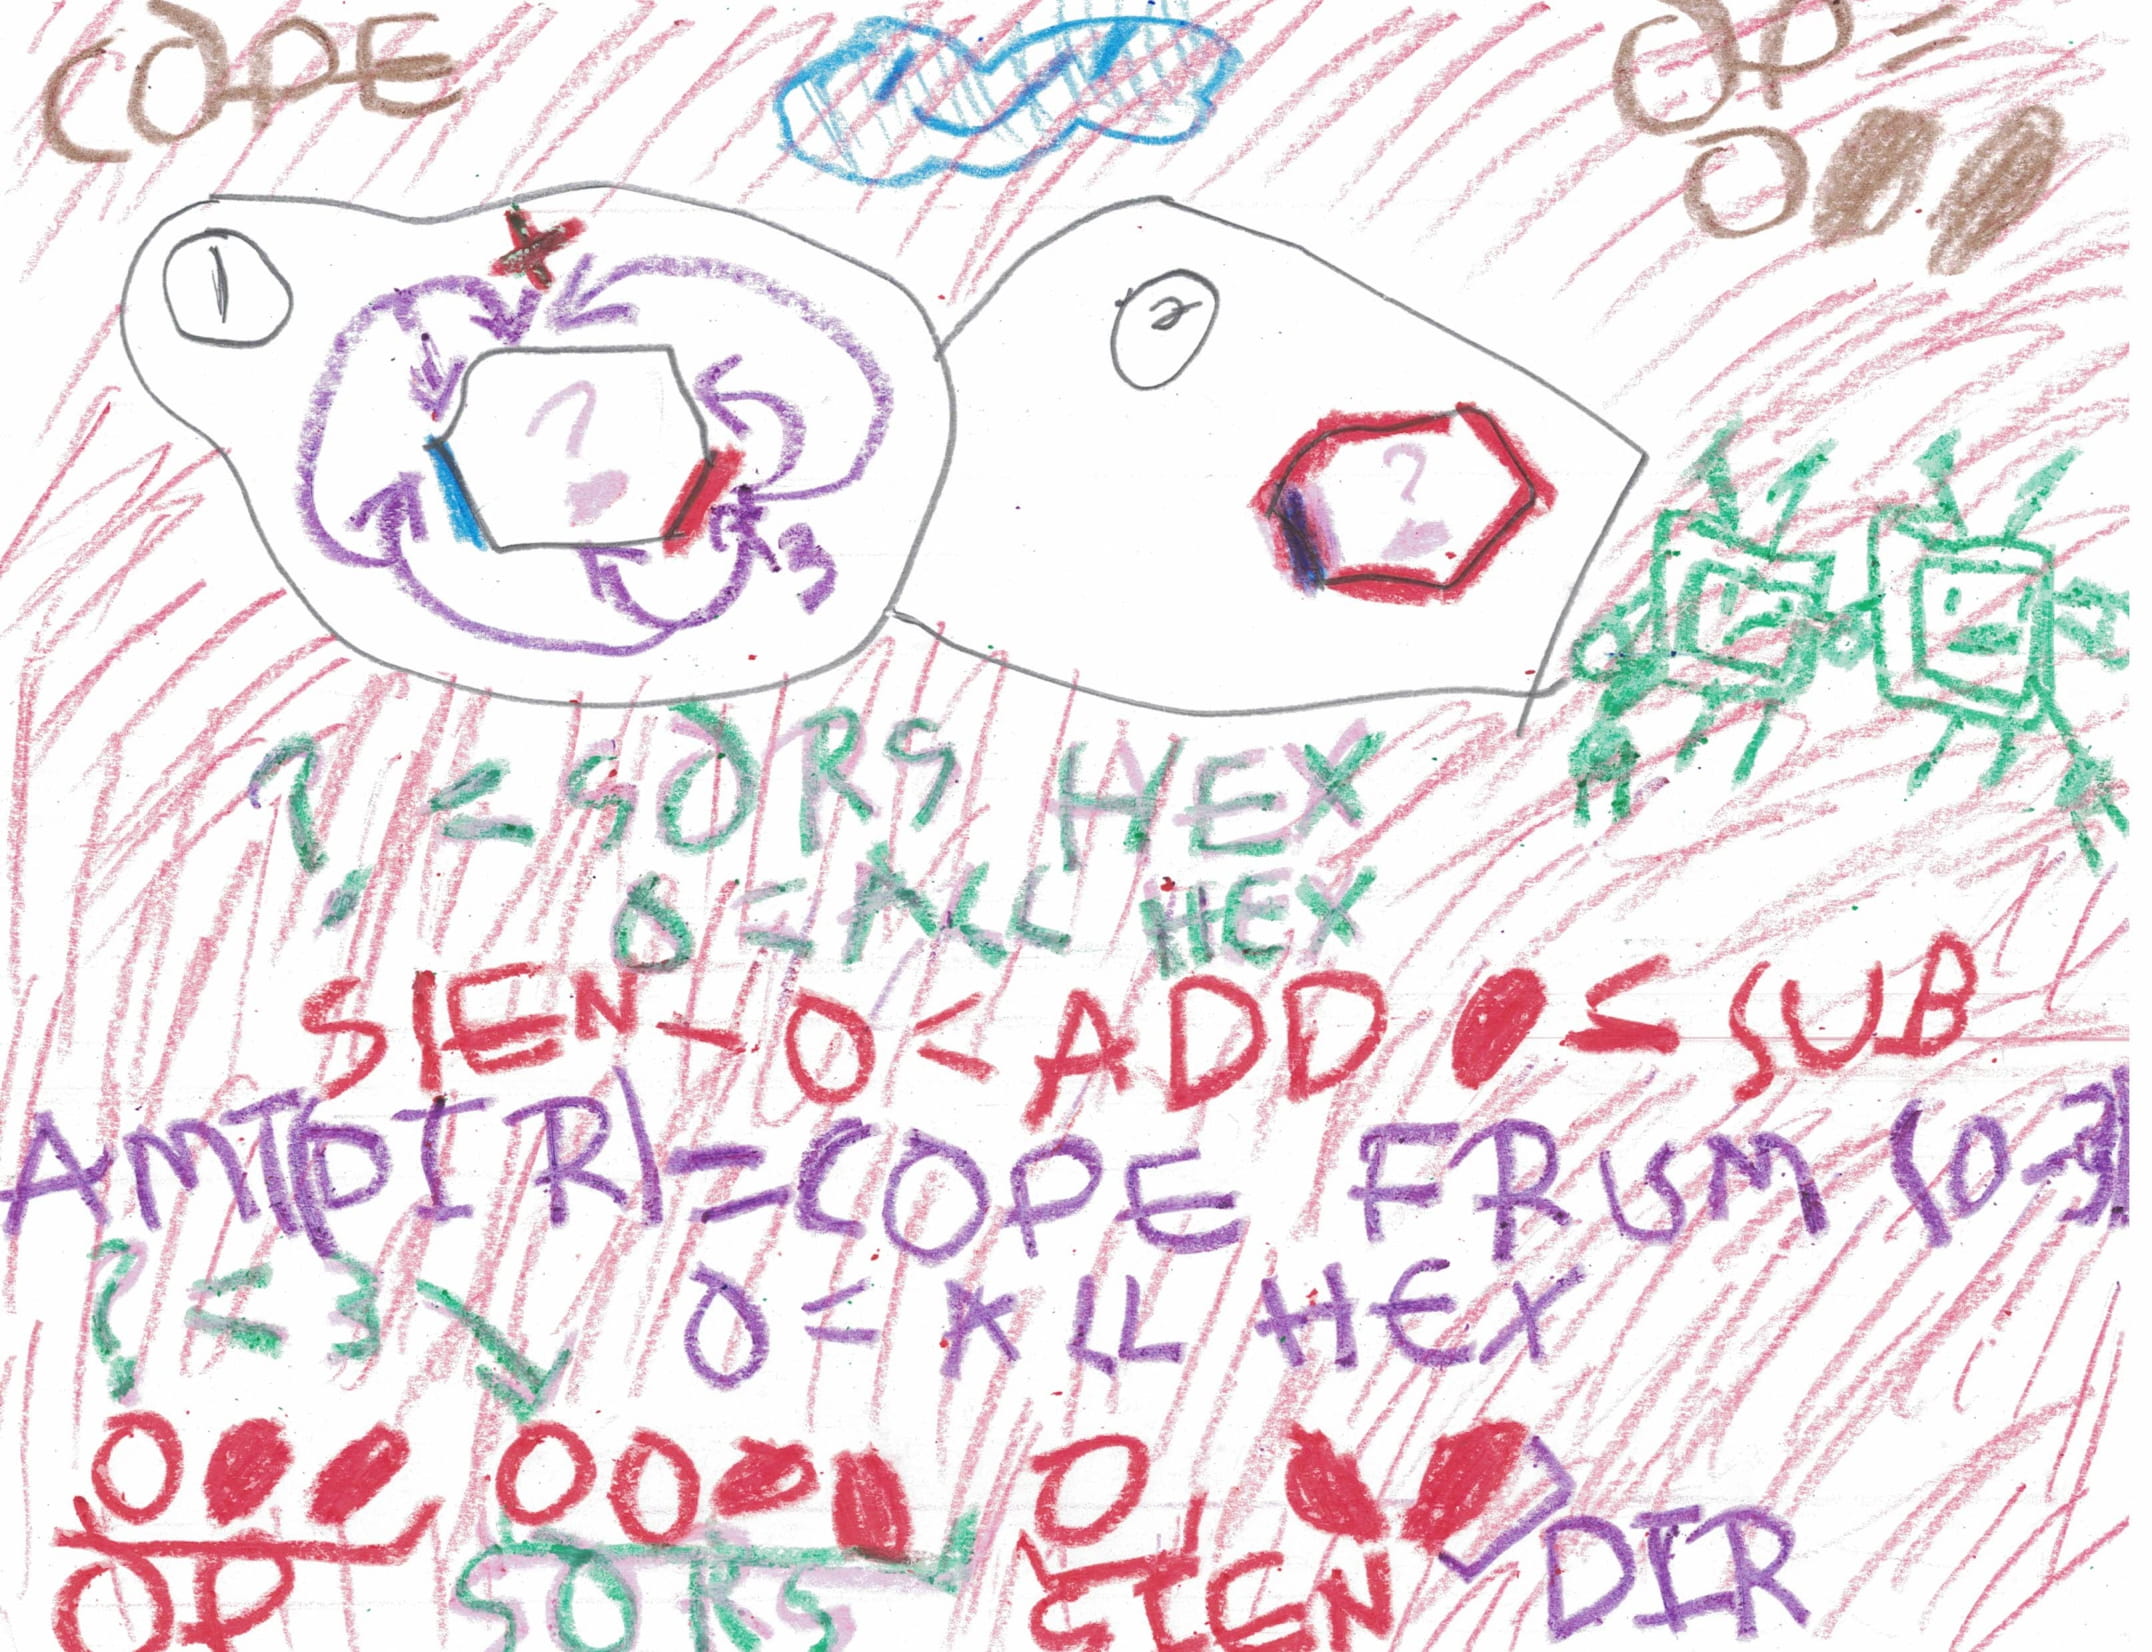 COPE
OP =
1
2
?
?
3
? = SORS HEX
0 = ALL HEX
SIEN - 0 = ADD ● = SUB
AMT(DIR) = COPE FRUM (0-3)
? = 3
0 = ALL HEX
OP SORS SIEN DIR